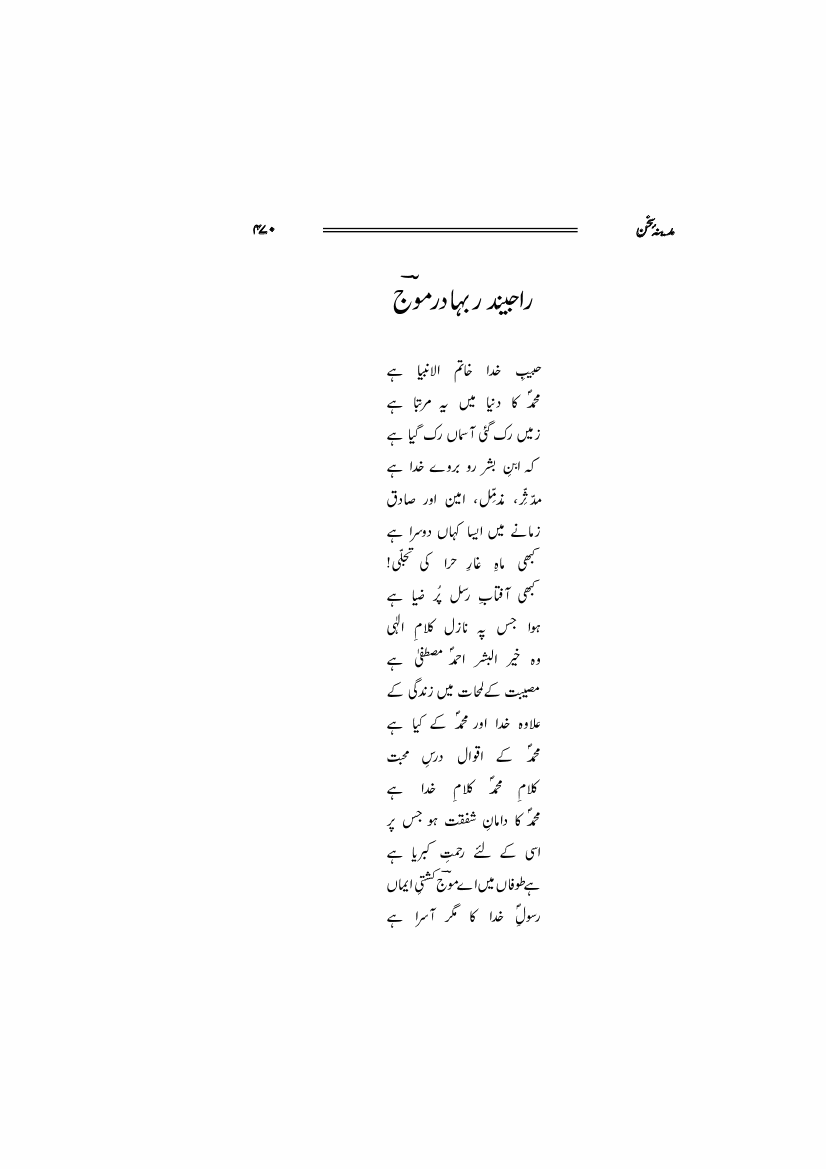 مدینہ سخن ۴۷۰
راجیند ر بہادر موجؔ
حبیبِ خدا خاتم الانبیا ہے
محمدؐ کا دنیا میں یہ مرتبا ہے
زمیں رک گئی آسماں رک گیا ہے
کہ ابنِ بشر رو بروے خدا ہے
مدّثِّر، مذمِّل، امین اور صادق
زمانے میں ایسا کہاں دوسرا ہے
کبھی ماہِ غارِ حرا کی تجلّی!
کبھی آفتابِ رسل پُر ضیا ہے
ہوا جس پہ نازل کلامِ الٰہی
وہ خیر البشر احمدؐ مصطفیٰ ہے
مصیبت کے لمحات میں زندگی کے
علاوہ خدا اور محمدؐ کے کیا ہے
محمدؐ کے اقوال درسِ محبت
کلامِ محمدؐ کلامِ خدا ہے
محمدؐ کا دامانِ شفقت ہو جس پر
اسی کے لئے رحمتِ کبریا ہے
ہے طوفاں میں اے موجؔ کشتیِ ایماں
رسولِؐ خدا کا مگر آسرا ہے